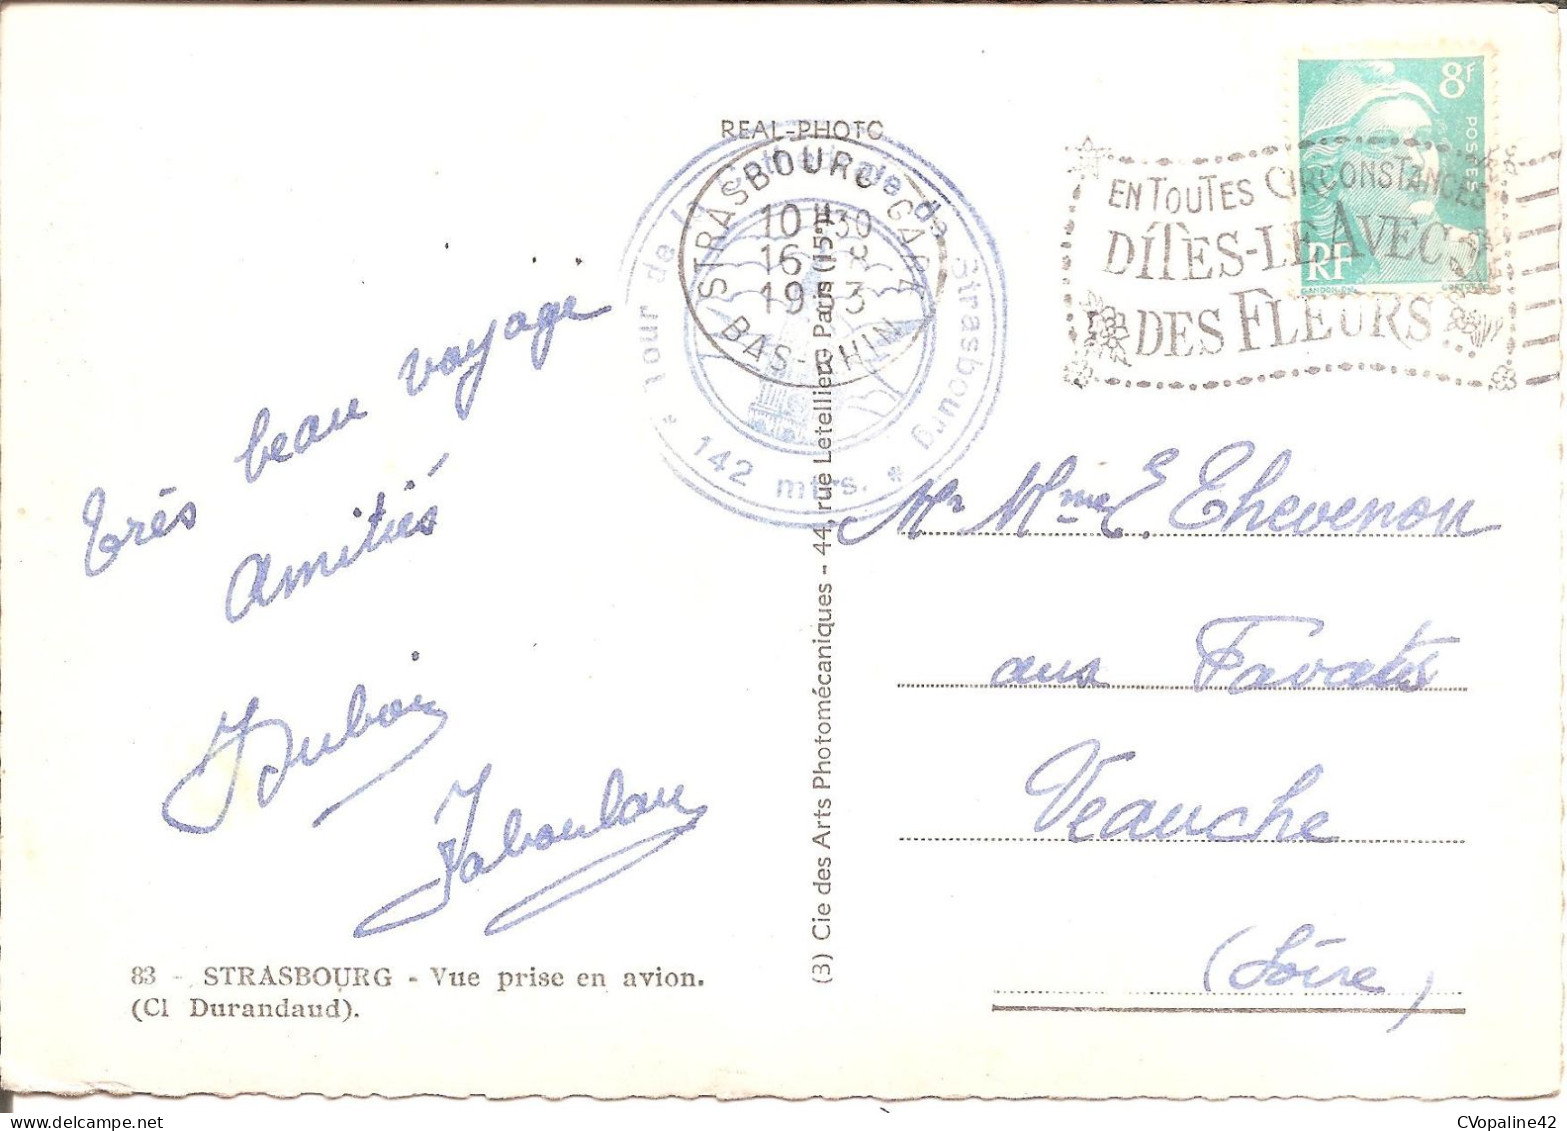 REAL-PHOTO
STRASBOURG GARE
10H30
16 - 8
19 3
BAS-RHIN
Tour de la Cathédrale de Strasbourg
* 142 mtrs. *
8f
POSTES
RF
GANDON
EN TOUTES CIRCONSTANCES
DITES-LE AVEC
DES FLEURS
Très beau voyage
Amitiés
Dubois
Jaboulay
Mr Mme E. Thevenon
aux Favatis
Veauche
(Loire)
83 - STRASBOURG - Vue prise en avion.
(Cl Durandaud).
(3) Cie des Arts Photomécaniques - 44, rue Letellier, Paris (15e)
CVopaline42